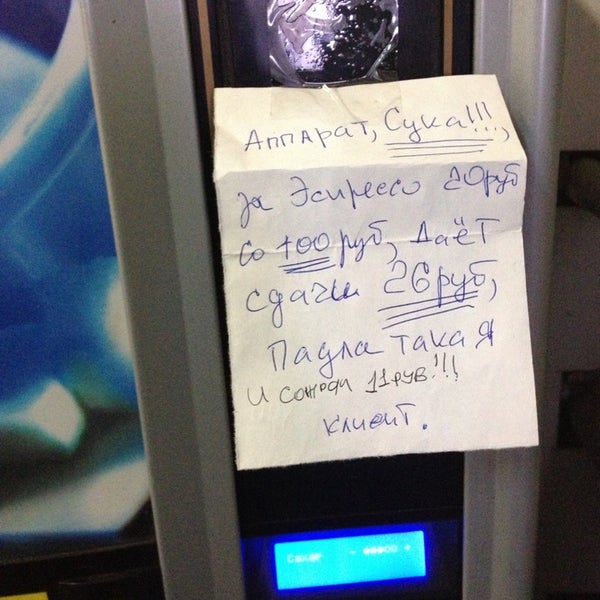 Аппарат, Сука!!!,
за Эспрессо 20руб
со 100 руб, даёт
сдачи 26руб,
Падла така Я
И сожрал 11 рув!!!
клиент.
Сахар - ●●●○○ +